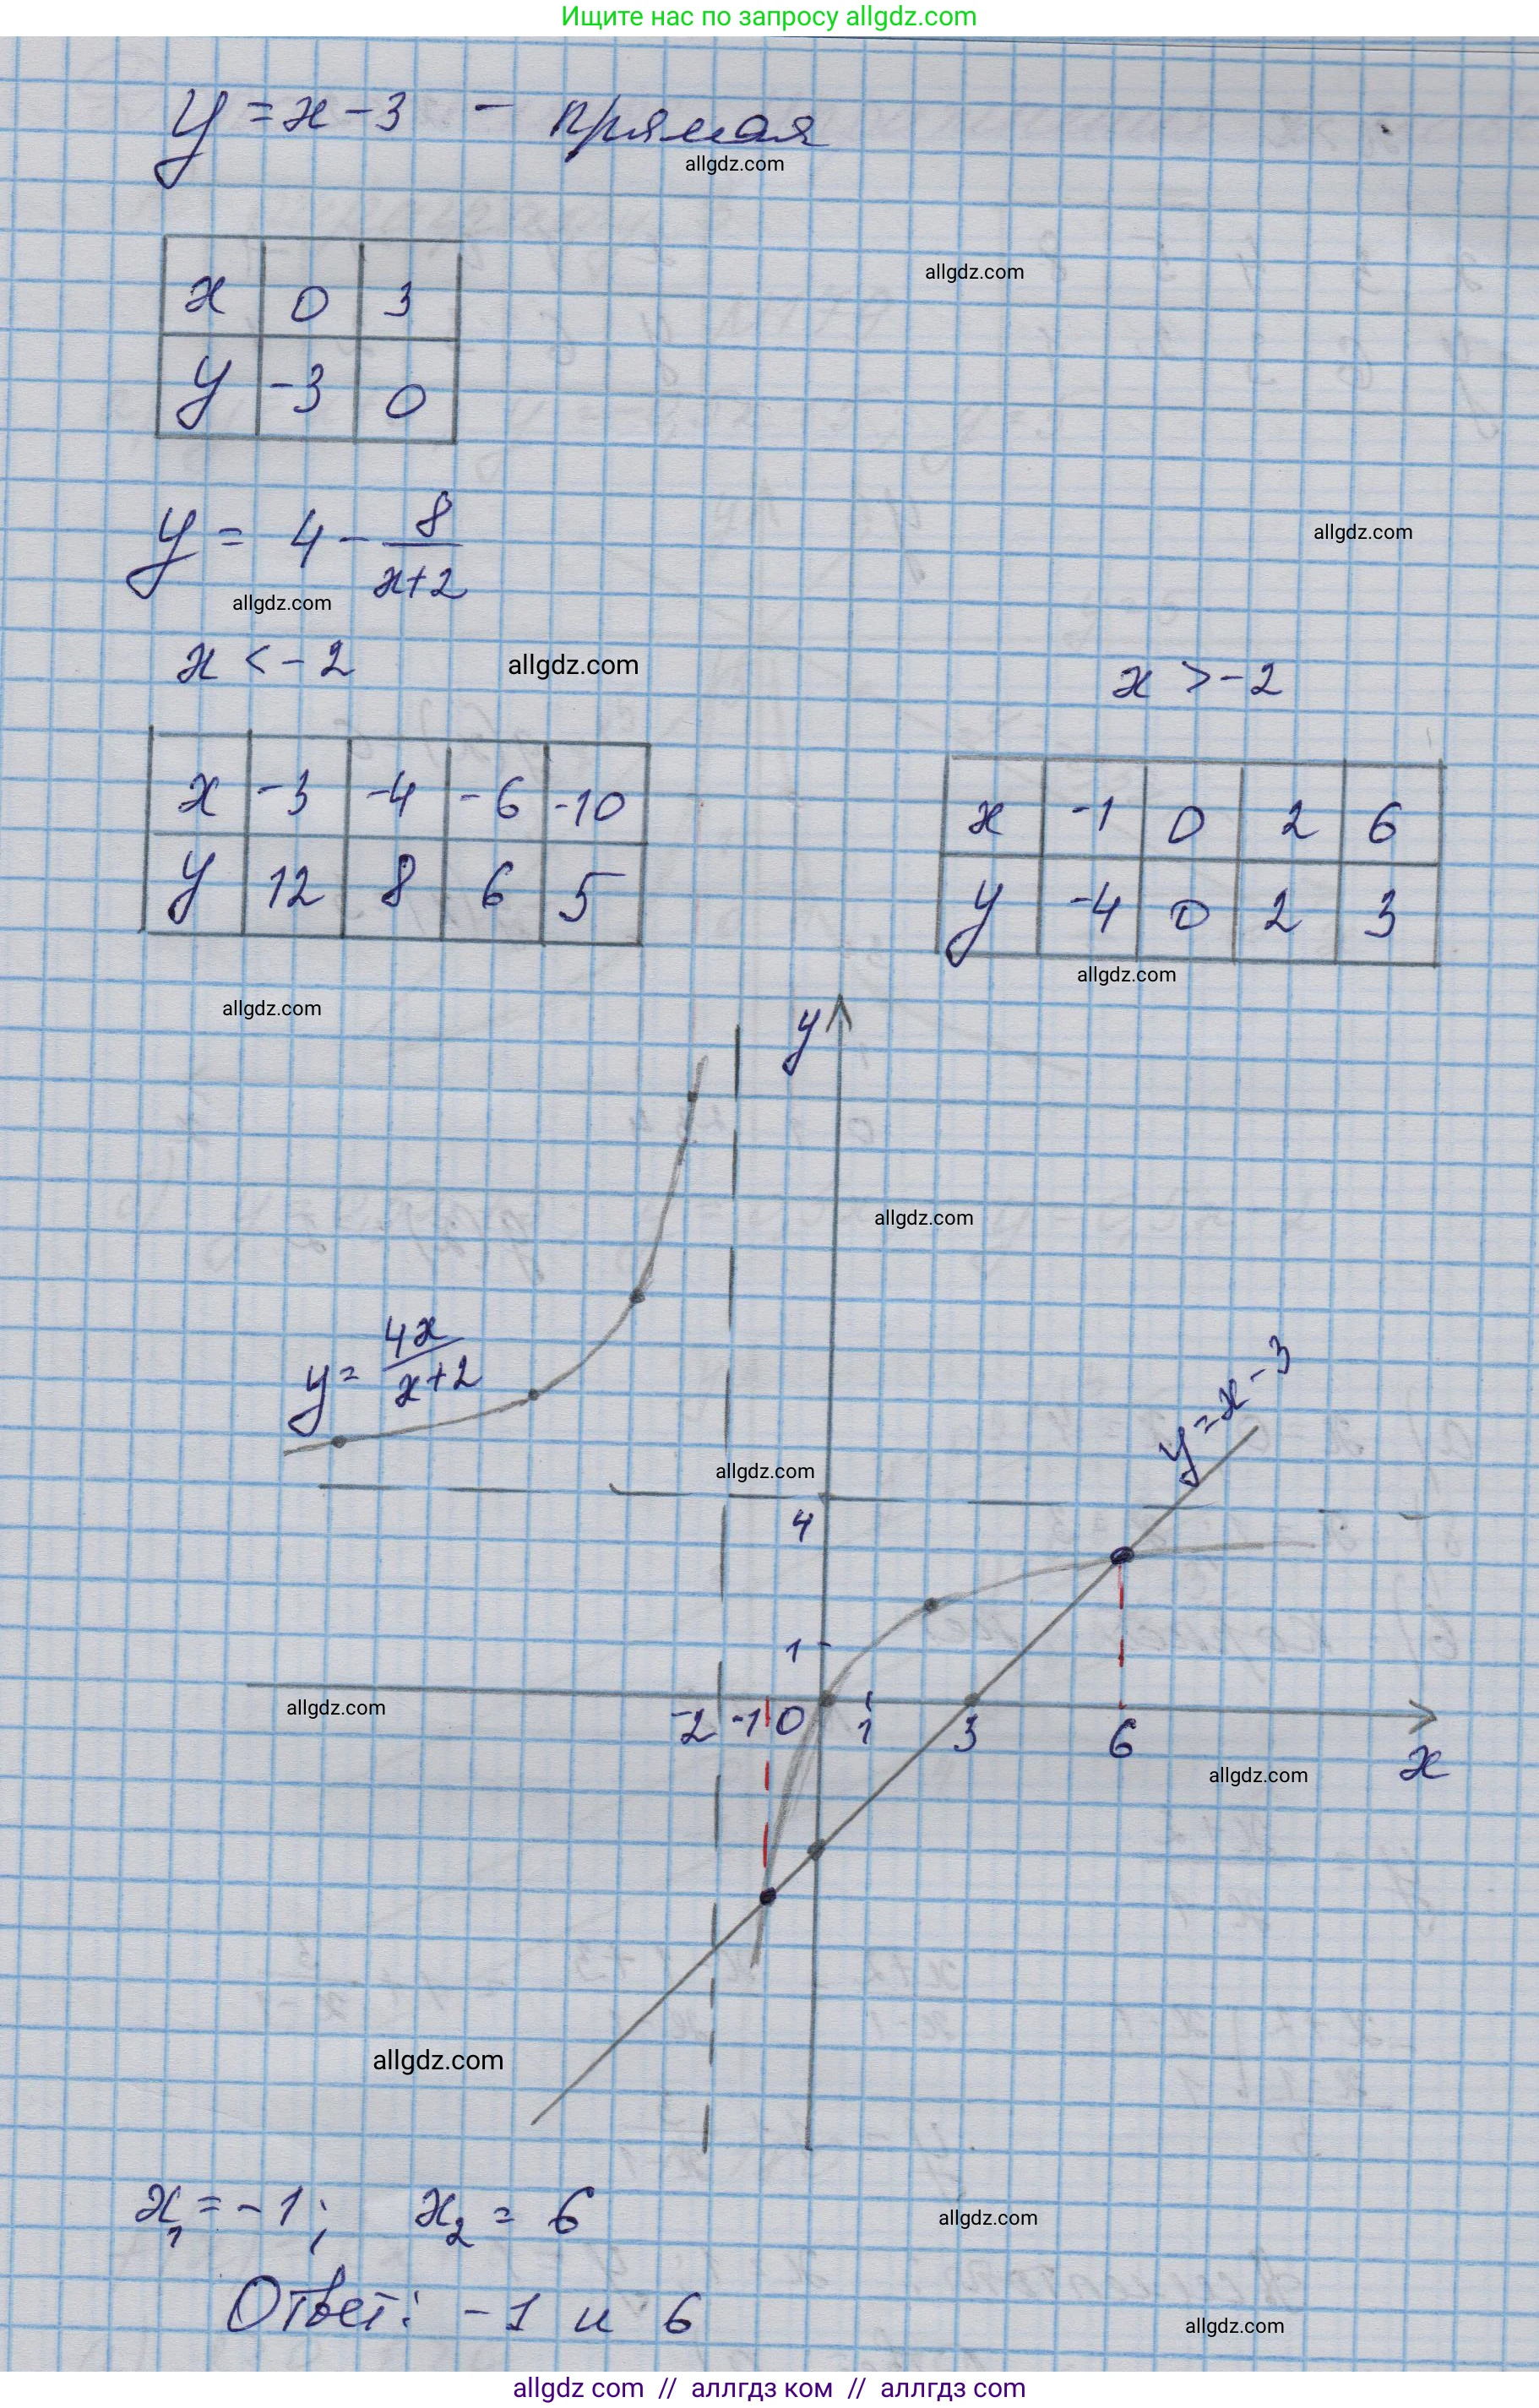 Ищите нас по запросу allgdz.com
y = x - 3 - прямая
allgdz.com
allgdz.com
x 0 3
y -3 0
y = 4 - 8/(x+2)
allgdz.com
allgdz.com
x < -2
allgdz.com
x > -2
x -3 -4 -6 -10
y 12 8 6 5
x -1 0 2 6
y -4 0 2 3
allgdz.com
allgdz.com
y
allgdz.com
y = 4x/(x+2)
y = x - 3
allgdz.com
4
1
allgdz.com
-2 -1 0 1 3 6
x
allgdz.com
allgdz.com
x₁ = -1; x₂ = 6
allgdz.com
Ответ: -1 и 6
allgdz.com
allgdz com // аллгдз ком // аллгдз com